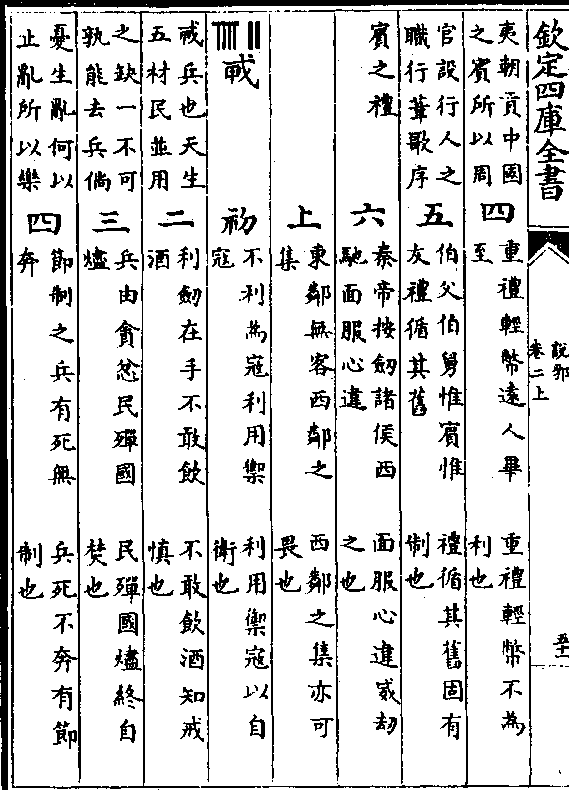 欽定四庫全書
說郛
卷二上
五十一
夷朝貢中國
之賓所以周
四
重禮輕幣遠人畢
至
重禮輕幣不為
利也
官設行人之
職行葦歌序
五
伯父伯舅惟賓惟
友禮循其舊
禮循其舊固有
制也
賓之禮
六
秦帝按劒諸侯西
馳面服心違
面服心違威刼
之也
上
東鄰無客西鄰之
集
西鄰之集亦可
畏也
初
不利為寇利用禦
寇
利用禦寇以自
衛也
兵也天生
五材民並用
二
利劒在手不敢飲
酒
不敢飲酒知戒
慎也
之缺一不可
孰能去兵倘
三
兵由貪忿民殫國
燼
民殫國燼終自
焚也
憂生亂何以
止亂所以樂
四
節制之兵有死無
奔
兵死不奔有節
制也